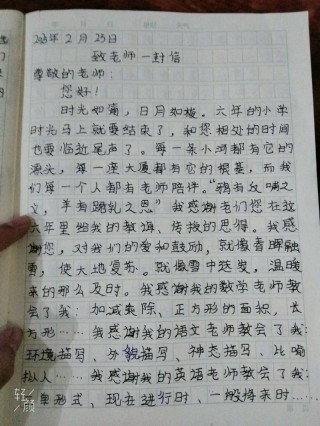 2021年2月23日
致老师一封信
尊敬的老师:
您好!
时光如箭,日月如梭。六年的小学
时光马上就要结束了,和您相处的时间
也要临近尾声了。每一条小河都有它的
源头,每一座大厦都有它的根基,而我
们每一个人都有老师陪伴。"鸦有反哺之
义,羊有跪乳之恩"我感谢老师们您在这
六年里给我的教诲、传授的恩得。我感
谢您,对我们的爱和鼓励,就像春晖融
雪,使大地复苏。就像雪中送炭,温暖
来的那么及时。我感谢我的数学老师教
会了我:加减乘除、正方形的面积,长
方形……我感谢我的语文老师教会了我:
环境描写、外貌描写、神态描写、比喻
拟人……我感谢我的英语老师教会了我
单形式、现在进行时、一般将来时……
轻颜